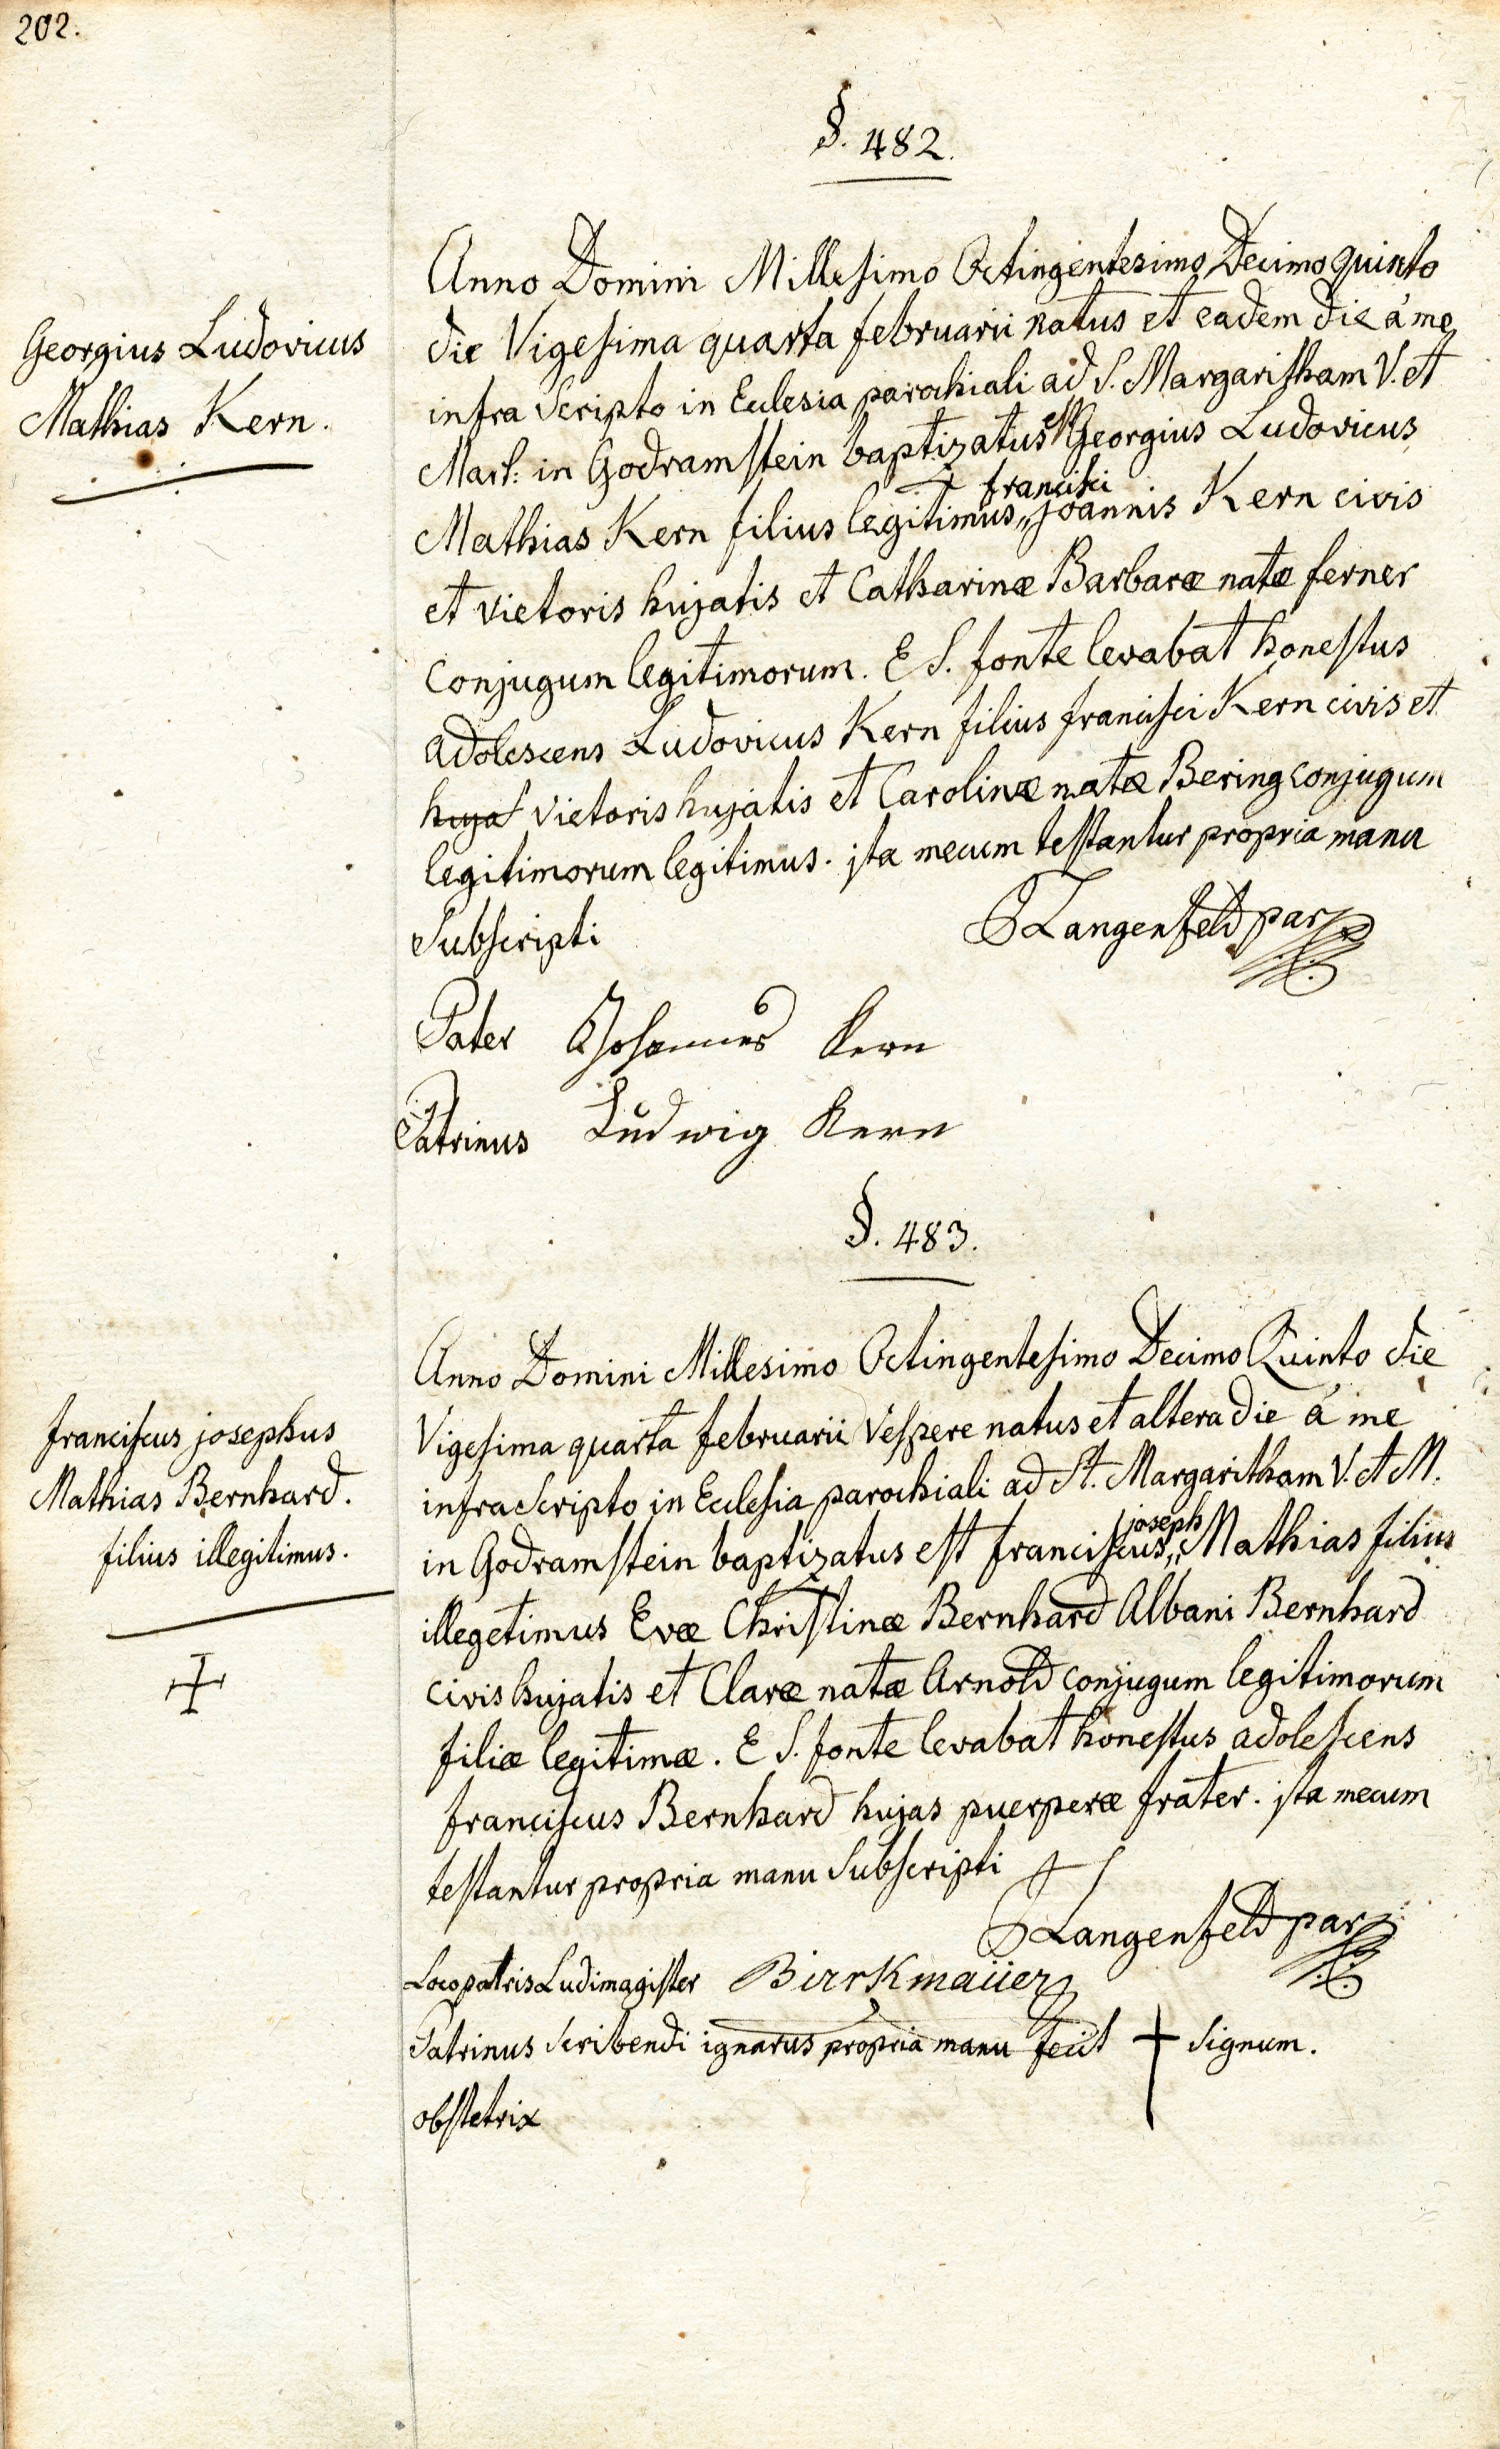 202.
§. 482.
Georgius Ludovicus
Mathias Kern.
Anno Domini Millesimo Octingentesimo Decimo quinto
die Vigesima quarta februarii natus et eadem die á me
infra Scripto in Eclesia parochiali ad S. Margaritham V. et
Mart: in Godramstein baptizatus est Georgius Ludovicus
francisci
Mathias Kern filius legitimus„ joannis Kern civis
et vietoris hujatis et Catharinæ Barbaræ natæ ferner
Conjugum legitimorum. E S. fonte levabat honestus
adolescens Ludovicus Kern filius francisci Kern civis et
hujat vietoris hujatis et Carolinæ natæ Bering conjugum
legitimorum legitimus. jta mecum testantur propria manu
Subscripti
Langenfeld par
Pater Johannes Kern
Patrinus Ludwig Kern
§. 483.
franciscus josephus
Mathias Bernhard.
filius illegitimus.
Anno Domini Millesimo Octingentesimo Decimo Quinto die
Vigesima quarta februarii Vespere natus et altera die á me
infra Scripto in Eclesia parochiali ad St. Margaritham V. et M.
joseph
in Godramstein baptizatus est franciscus„ Mathias filius
illegetimus Evæ Christinæ Bernhard Albani Bernhard
civis hujatis et Claræ natæ Arnold conjugum legitimorum
filiæ legitimæ. E S. fonte levabat honestus adolescens
franciscus Bernhard hujas puerperæ frater. jta mecum
testantur propria manu Subscripti
Langenfeld par
Loco patris Ludimagister Birkmaüer
Patrinus Scribendi ignarus propria manu fecit + Signum.
obstetrix